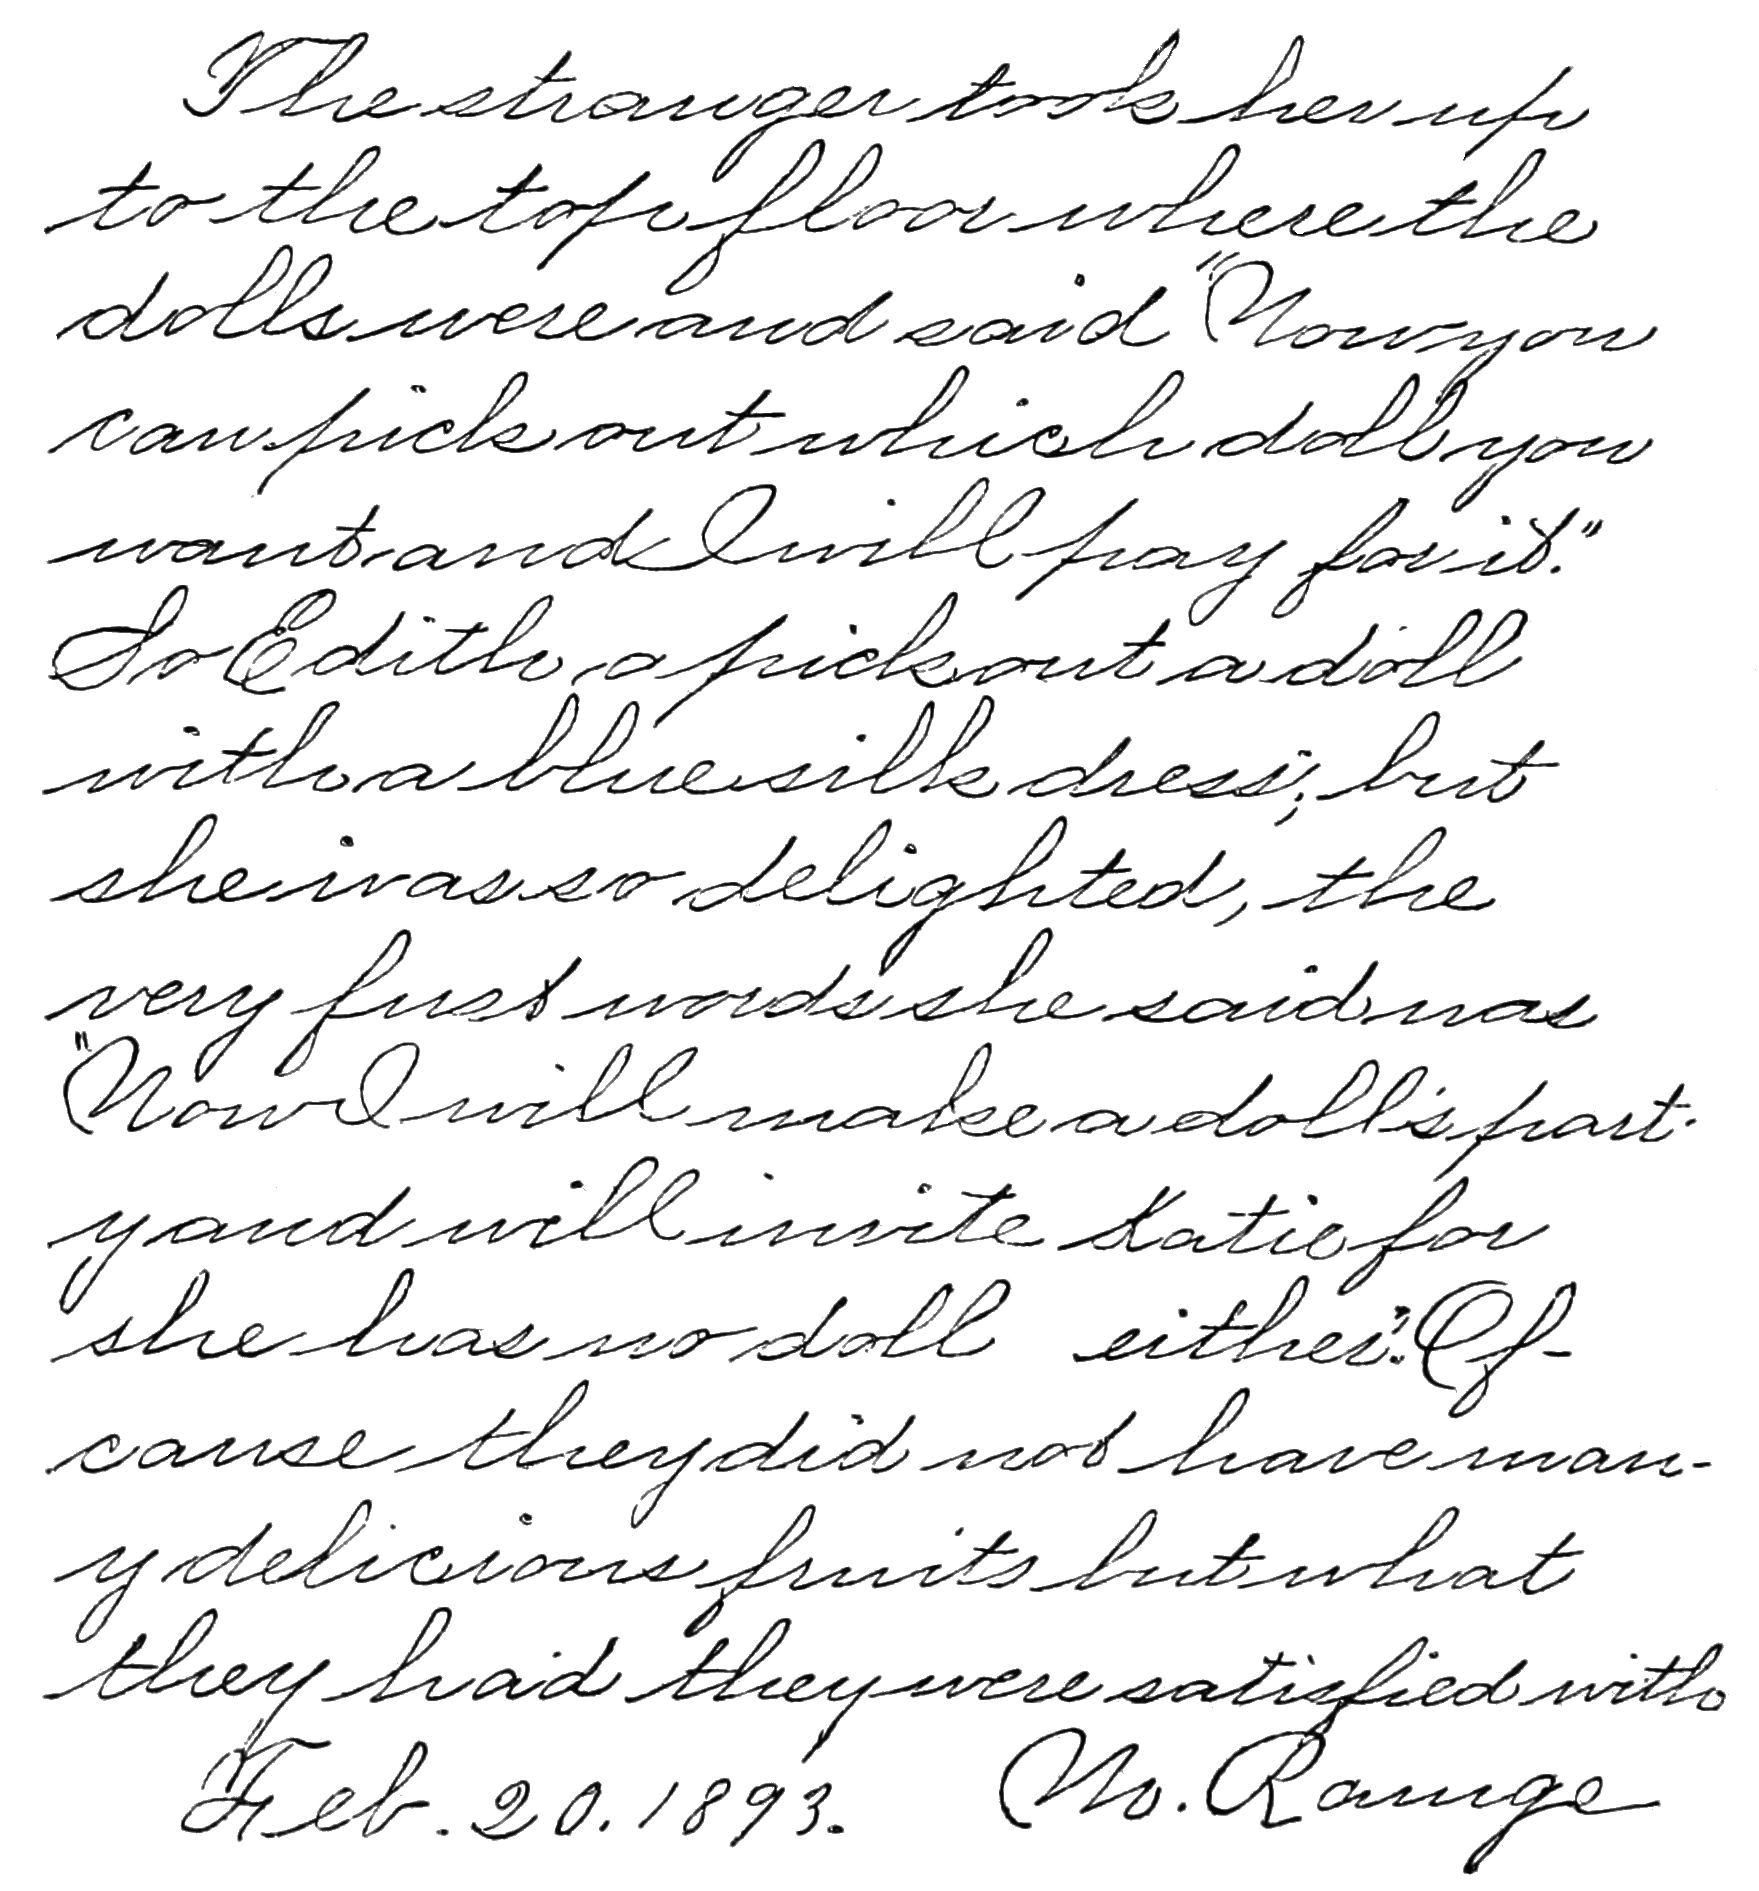 The stranger took her up
to the top floor where the
dolls were and said "Now you
can pick out which doll you
want and I will pay for it."
So Edith a pick out a doll
with a blue silk dress; but
she was so delighted, the
very furst words she said was
"Now I will make a doll's part-
y and will invite Katie for
she has no doll either." Of-
cause they did not have man-
y delicious fruits but what
they had they were satisfied with
Feb. 20. 1893. M. Ramge